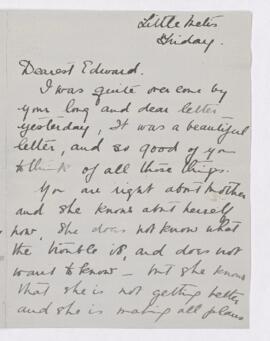 Little Metis
Friday.
Dearest Edward.
I was quite over come by
your long and dear letter
yesterday, It was a beautiful
letter, and so good of you
to think of all those things.
You are right about Mother
and she knows about herself
now, She does not know what
the trouble is, and does not
want to know — but she knows
that she is not getting better
and she is making all plans